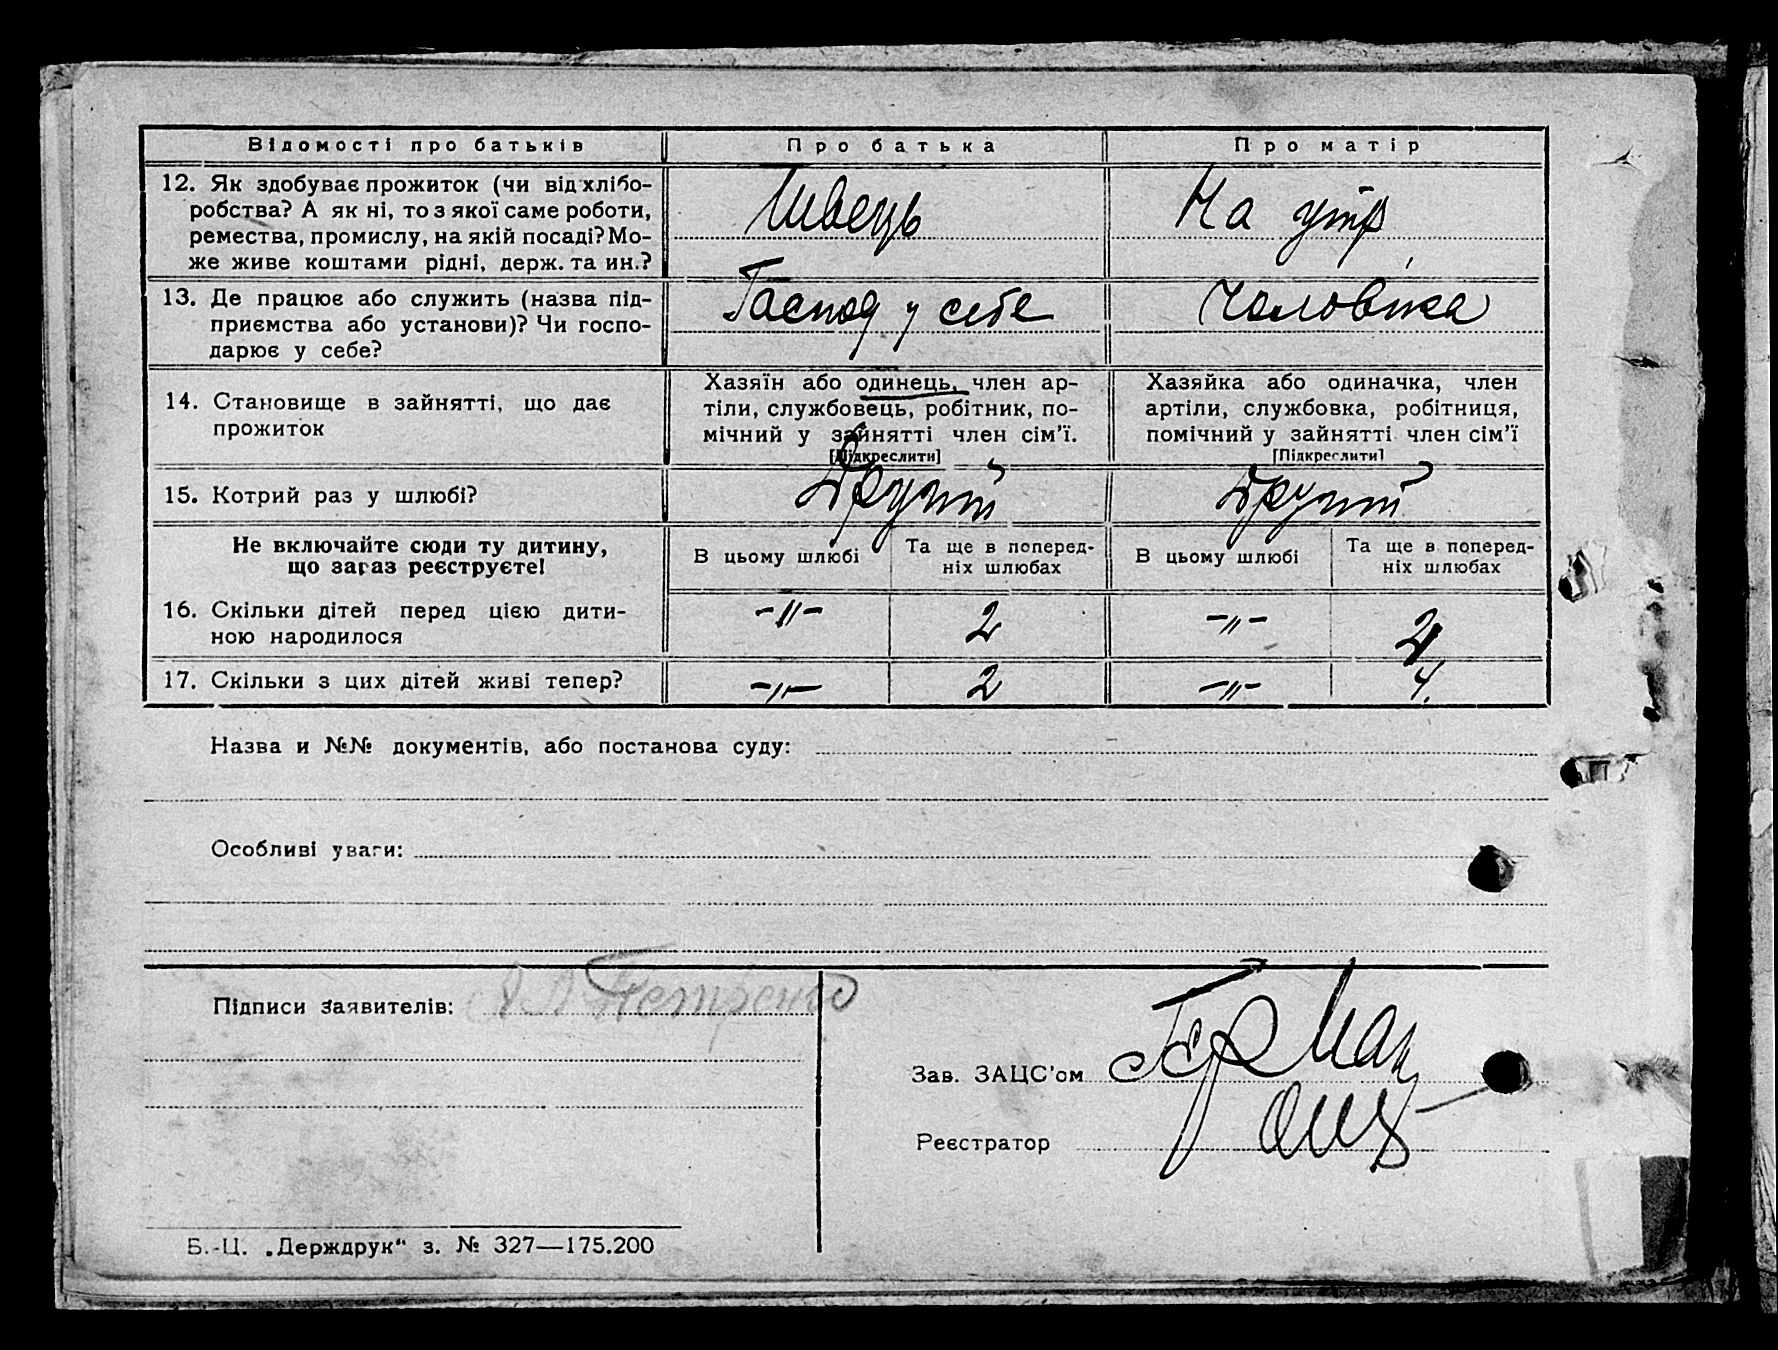 Відомості про батьків Про батька Про матір
12. Як здобуває прожиток (чи від хлібо-
робства? А як ні, то з якої саме роботи,
ремества, промислу, на якій посаді? Мо-
же живе коштами рідні, держ. та ин.?
Швець
На утр,
13. Де працює або служить (назва під-
приємства або установи)? Чи госпо-
дарює у себе?
Господ у себе
чоловіка
14. Становище в зайнятті, що дає
прожиток
Хазяїн або одинець, член ар-
тіли, службовець, робітник, по-
мічний у зайнятті член сім'ї.
[Підкреслити]
Хазяйка або одиначка, член
артіли, службовка, робітниця,
помічний у зайнятті член сім'ї
[Підкреслити]
15. Котрий раз у шлюбі?
Другий
Другий
Не включайте сюди ту дитину,
що зараз реєструєте!
В цьому шлюбі
Та ще в поперед-
ніх шлюбах
В цьому шлюбі
Та ще в поперед-
ніх шлюбах
16. Скільки дітей перед цією дити-
ною народилося
-"- 2 -"-
17. Скільки з цих дітей живі тепер?
-"- 2 -"- 4.
Назва и №№ документів, або постанова суду:
Особливі уваги:
Підписи заявителів: Петренко
Зав. ЗАЦС'ом
Реєстратор
Б.-Ц. „Держдрук" з. № 327—175.200